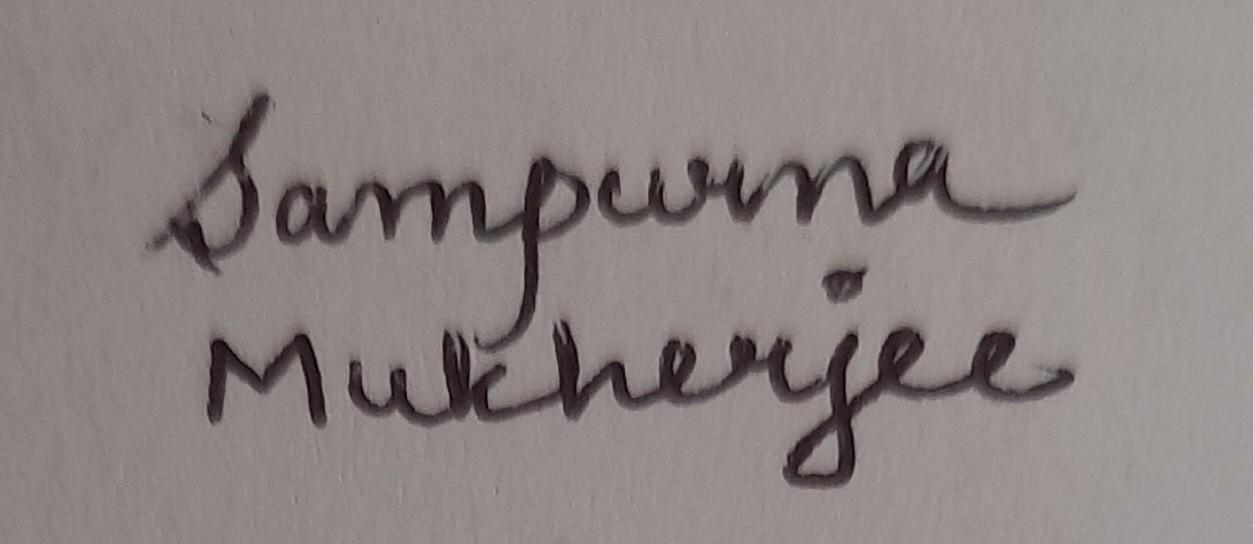 Sampurna
Mukherjee